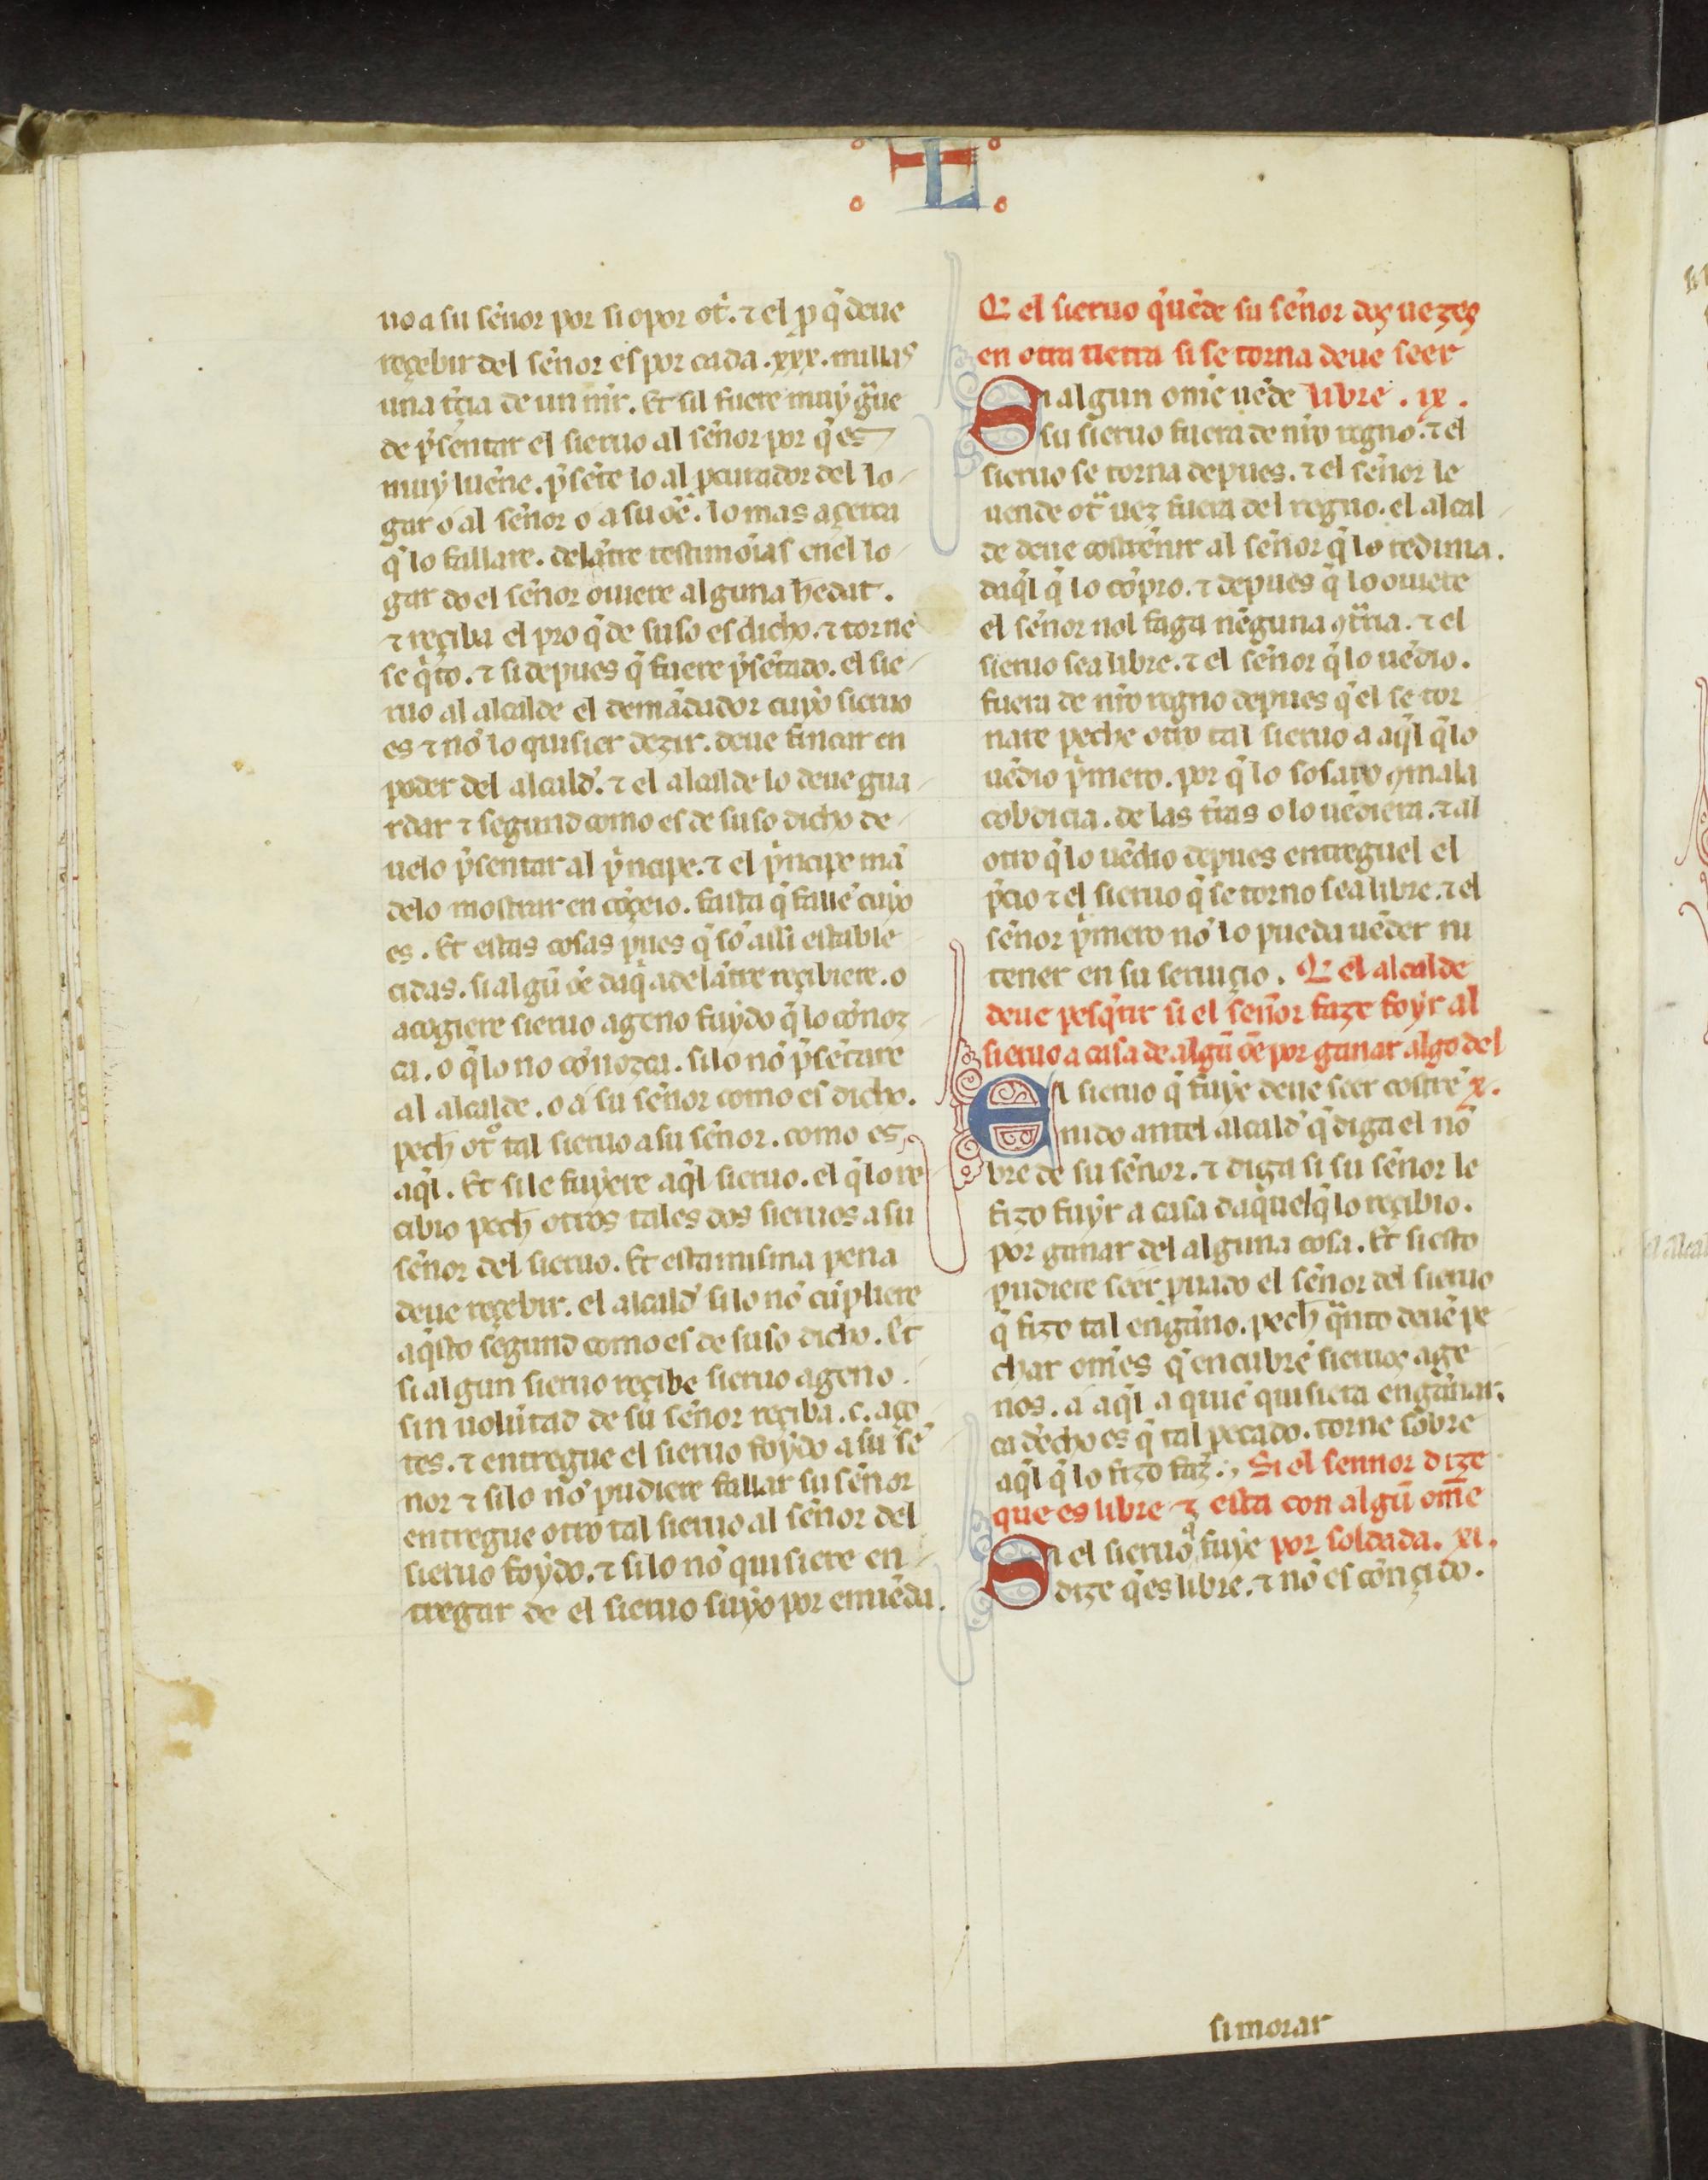 L
uo a su sen̄or por si o por ot̃. ⁊ el ꝓ q̄ deue
reçebir del sen̄or es por cada .xxx. millas
una t̃çia de un mr̃. Et sil fuere muy g̃ue
de p̃sentar el sieruo al sen̄or por q̄ es
muy luen̄e. p̃sẽte lo al ꝓcurador del lo-
gar o al sen̄or o a su oẽ. lo mas açerca
q̄ lo fallare. delãtre testimonĩas en el lo-
gar do el sen̄or ouiere alguna h̃edat.
⁊ reçiba el pro q̄ de suso es dicho. ⁊ torne
se q̃to. ⁊ si depues q̄ fuere p̃sẽtado. el sie-
ruo al alcalde el demãdador cuyo sieruo
es ⁊ nõ lo quisier dezir. deue fincar en
poder del alcald̃. ⁊ el alcalde lo deue gua-
rdar ⁊ segund como es de suso dicho de-
uelo p̃sentar al p̃ncipe. ⁊ el p̃ncipe mã
delo mostrar en cõçeio. fasta q̄ fallẽ cuyo
es. Et estas cosas pues q̄ sõ assi estable
cidas. si algũ oẽ daq̃ adelãtre reçibiere. o
acogiere sieruo ageno fuydo q̄ lo cõnoz
ca. o q̄ lo no cõnozca. si lo nõ p̃sẽtare
al alcalde. o a su sen̄or como es dicho.
pech̃ otº tal sieruo a su sen̄or. como es
aq̃l. Et si le fuyere aq̃l sieruo. el q̄ lo re
cibio pech̃ otros tales dos sieruos a su
sen̄or del sieruo. Et esta misma pena
deue reçebir. el alcald̃ si lo nõ cũpliere
aq̃sto segund como es de suso dicho. Et
si algun sieruo reçibe sieruo ageno.
sin volũtad de su sen̄or reçiba .c. aço
tes. ⁊ entregue el sieruo foydo a su se
nor ⁊ si lo nõ pudiere fallar su sen̄or
entregue otro tal sieruo al sen̄or del
sieruo foydo. ⁊ si lo nõ quisiere en-
tregar de el sieruo suyo por emiẽda.
Q̃ el sieruo q̃ uẽde su sen̄or dos uezes
en otra tierra si se torna deue seer
Si algun om̃e uẽde libre . ix .
su sieruo fuera de nr̃o regno. ⁊ el
sieruo se torna depues. ⁊ el sen̄or le
uende ot̃ uez fuera del regno. el alcal-
de deue costren̄ir al sen̄or q̄ lo redima.
daq̃l q̄ lo cõpro. ⁊ depues q̄ lo ouiere
el sen̄or nol faga nẽguna ꝯt̃ria. ⁊ el
sieruo sea libre. ⁊ el sen̄or q̄ lo uẽdio.
fuera de nr̃o regno depues q̄ el se tor
nare peche otro tal sieruo a aq̃l q̄ lo
uẽdio p̃mero. por q̄ lo sosaco ꝯ mala
cobdicia. de las t̃ras o lo uẽdiera. ⁊ al
otro q̄ lo uẽdio depues entreguel el
p̃cio ⁊ el sieruo q̄ se torno sea libre. ⁊ el
sen̄or p̃mero nõ lo pueda uẽder ni
tener en su seruiçio. Q̃ el alcalde
deue pesq̃rir si el sen̄or faze foyr al
sieruo a casa de algũ oẽ por ganar algo del
El sieruo q̄ fuye deue seer costrẽ x.
nido antel alcald̃ q̄ diga el nõ
bre de su sen̄or. ⁊ diga si su sen̄or le
fizo fuyr a casa daquel q̄ lo reçibio.
por ganar del alguna cosa. Et si esto
pudiere seer puado el sen̄or del sieruo
q̄ fizo tal engan̄o. pech̃ q̃nto deuẽ pe
char om̃es q̄ encubrẽ sieruos age
nos. a aq̃l a quiẽ quisiera engan̄ar.
ca dr̃echo es q̄ tal pecado. torne sobre
aq̃l q̄ lo fizo faz̃. Si el sennor dize
que es libre ⁊ esta con algũ om̃e
Si el sieruo q̄ fuye por soldada. xi.
dize q̄ es libre. ⁊ nõ es cõnçido.
si morar